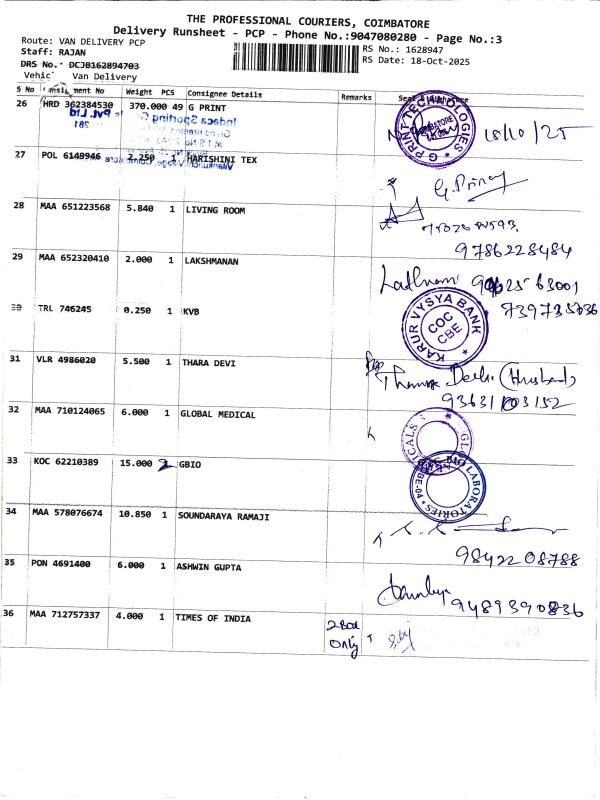 THE PROFESSIONAL COURIERS, COIMBATORE
Delivery Runsheet - PCP - Phone No.:9047080280 - Page No.:3
Route: VAN DELIVERY PCP
RS No.: 1628947
Staff: RAJAN
RS Date: 18-Oct-2025
DRS No.: DCJB162894703
Van Delivery
S No Consignment No Weight PCS Consignee Details Remarks Seal & Signature
26 HRD 362384530 370.000 49 G PRINT
G PRINT TECHNOLOGIES
COIMBATORE
18/10/25
27 POL 6149946 2.250 1 HARISHINI TEX
28 MAA 651223568 5.840 1 LIVING ROOM
9786228484
29 MAA 652320410 2.000 1 LAKSHMANAN
30 TRL 746245 0.250 1 KVB
KARUR VYSYA BANK
COC
CBE
31 VLR 4986020 5.500 1 THARA DEVI
(Husband)
32 MAA 710124065 6.000 1 GLOBAL MEDICAL
33 KOC 62210389 15.000 2 GBIO
LABORATORIES
34 MAA 578076674 10.850 1 SOUNDARAYA RAMAJI
9842208788
35 PON 4691400 6.000 1 ASHWIN GUPTA
9489390836
36 MAA 712757337 4.000 1 TIMES OF INDIA
2 Box
Only